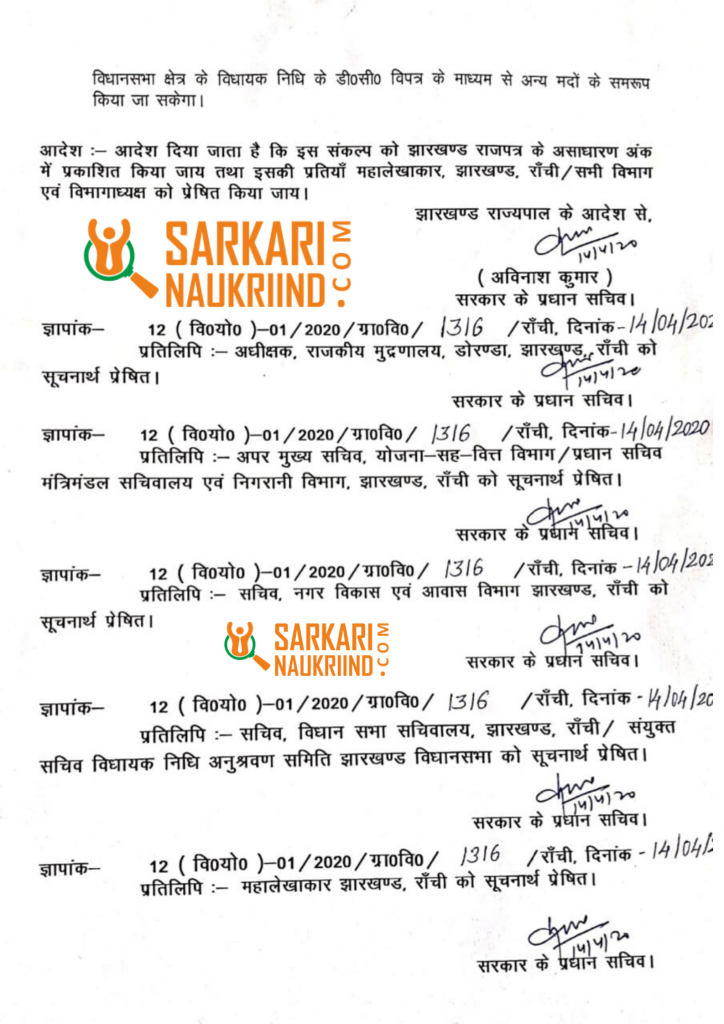 विधानसभा क्षेत्र के विधायक निधि के डी०सी० विपत्र के माध्यम से अन्य मदों के समरूप
किया जा सकेगा।
आदेश :– आदेश दिया जाता है कि इस संकल्प को झारखण्ड राजपत्र के असाधारण अंक
में प्रकाशित किया जाय तथा इसकी प्रतियाँ महालेखाकार, झारखण्ड, राँची/सभी विभाग
एवं विभागाध्यक्ष को प्रेषित किया जाय।
झारखण्ड राज्यपाल के आदेश से,
14/4/20
SARKARI
NAUKRIIND.COM
( अविनाश कुमार )
सरकार के प्रधान सचिव।
ज्ञापांक– 12 ( वि०यो० )–01/2020/ग्रा०वि०/ 1316 /राँची, दिनांक- 14/04/202
प्रतिलिपि :– अधीक्षक, राजकीय मुद्रणालय, डोरण्डा, झारखण्ड, राँची को
सूचनार्थ प्रेषित।
14/4/20
सरकार के प्रधान सचिव।
ज्ञापांक– 12 ( वि०यो० )–01/2020/ग्रा०वि०/ 1316 /राँची, दिनांक-14/04/2020
प्रतिलिपि :– अपर मुख्य सचिव, योजना–सह–वित्त विभाग/प्रधान सचिव
मंत्रिमंडल सचिवालय एवं निगरानी विभाग, झारखण्ड, राँची को सूचनार्थ प्रेषित।
14/4/20
सरकार के प्रधान सचिव।
ज्ञापांक– 12 ( वि०यो० )–01/2020/ग्रा०वि०/ 1316 /राँची, दिनांक -14/04/202
प्रतिलिपि :– सचिव, नगर विकास एवं आवास विभाग झारखण्ड, राँची को
सूचनार्थ प्रेषित।
SARKARI
NAUKRIIND.COM
14/4/20
सरकार के प्रधान सचिव।
ज्ञापांक– 12 ( वि०यो० )–01/2020/ग्रा०वि०/ 1316 /राँची, दिनांक - 14/04/20
प्रतिलिपि :– सचिव, विधान सभा सचिवालय, झारखण्ड, राँची/ संयुक्त
सचिव विधायक निधि अनुश्रवण समिति झारखण्ड विधानसभा को सूचनार्थ प्रेषित।
14/4/20
सरकार के प्रधान सचिव।
ज्ञापांक– 12 ( वि०यो० )–01/2020/ग्रा०वि०/ 1316 /राँची, दिनांक - 14/04/2
प्रतिलिपि :– महालेखाकार झारखण्ड, राँची को सूचनार्थ प्रेषित।
14/4/20
सरकार के प्रधान सचिव।